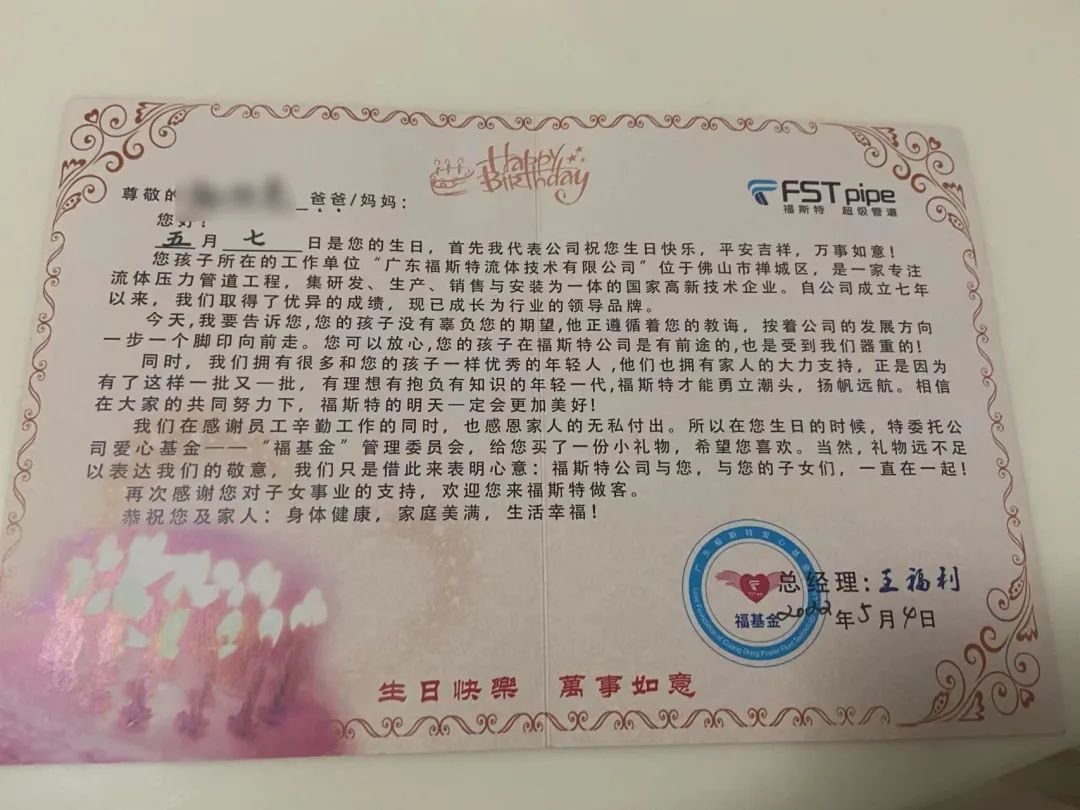 Happy
Birthday
FST pipe
福斯特 超级管道
尊敬的 爸爸/妈妈：
您好！
五月七日是您的生日，首先我代表公司祝您生日快乐，平安吉祥，万事如意！
您孩子所在的工作单位“广东福斯特流体技术有限公司”位于佛山市禅城区，是一家专注
流体压力管道工程，集研发、生产、销售与安装为一体的国家高新技术企业。自公司成立七年
以来，我们取得了优异的成绩，现已成长为行业的领导品牌。
今天,我要告诉您,您的孩子没有辜负您的期望,他正遵循着您的教诲，按着公司的发展方向
一步一个脚印向前走。您可以放心,您的孩子在福斯特公司是有前途的,也是受到我们器重的!
同时，我们拥有很多和您的孩子一样优秀的年轻人,他们也拥有家人的大力支持，正是因为
有了这样一批又一批，有理想有抱负有知识的年轻一代,福斯特才能勇立潮头，扬帆远航。相信
在大家的共同努力下，福斯特的明天一定会更加美好!
我们在感谢员工辛勤工作的同时，也感恩家人的无私付出。所以在您生日的时候，特委托公
司爱心基金——“福基金”管理委员会，给您买了一份小礼物，希望您喜欢。当然,礼物远不足
以表达我们的敬意，我们只是借此来表明心意：福斯特公司与您，与您的子女们，一直在一起！
再次感谢您对子女事业的支持，欢迎您来福斯特做客。
恭祝您及家人：身体健康，家庭美满，生活幸福！
广东福斯特爱心基金
福基金
总经理：王福利
2022年5月4日
生日快樂 萬事如意